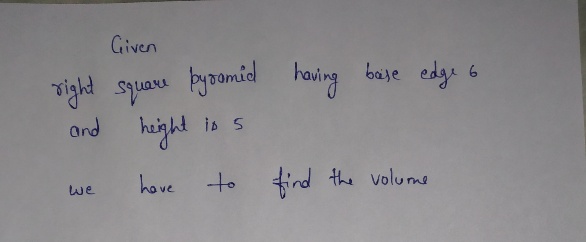 Given
right square pyramid having base edge 6
and height is 5
we have to find the volume